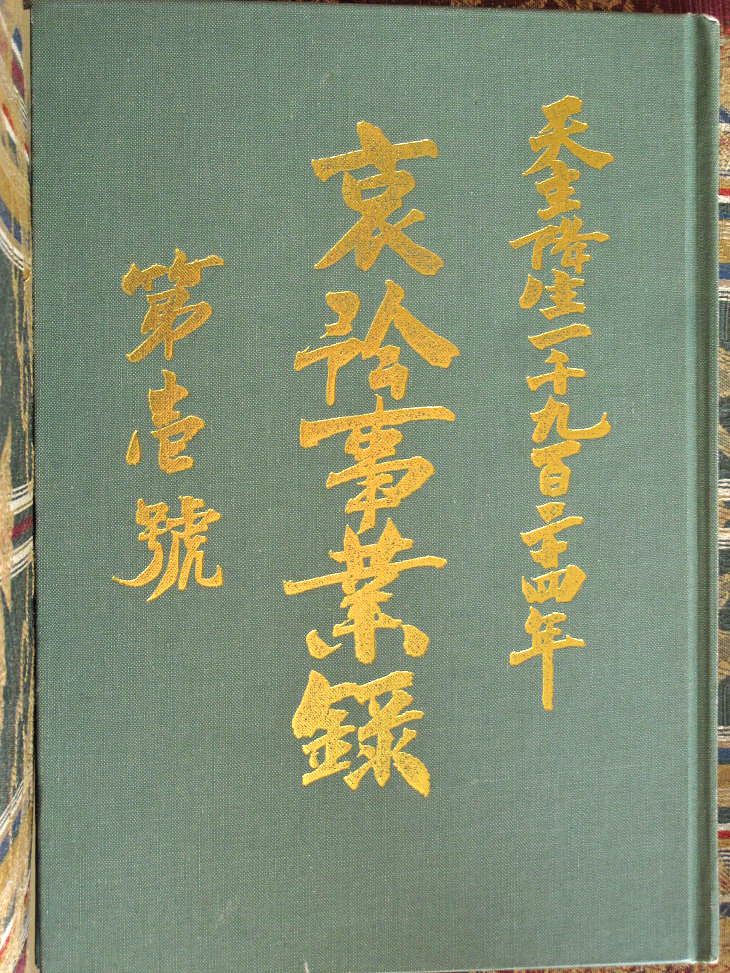 天主降生一千九百二十四年
哀矜事業錄
第壹號